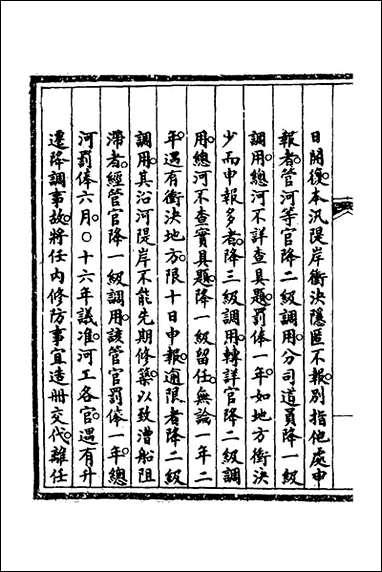 日開復本汛隄岸衝決隱匿不報別指他處申
報者管河等官降二級調用分司道員降一級
調用總河不詳查具題罰俸一年如地方衝決
少而申報多者降三級調用轉詳官降二級調
用總河不查實具題降一級留任無論一年二
年遇有衝決地方限十日申報逾限者降二級
調用其沿河隄岸不能先期修築以致漕船阻
滯者經管官降一級調用該管官罰俸一年總
河罰俸六月○十六年議准河工各官遇有升
遷降調事故將任內修防事宜造冊交代離任